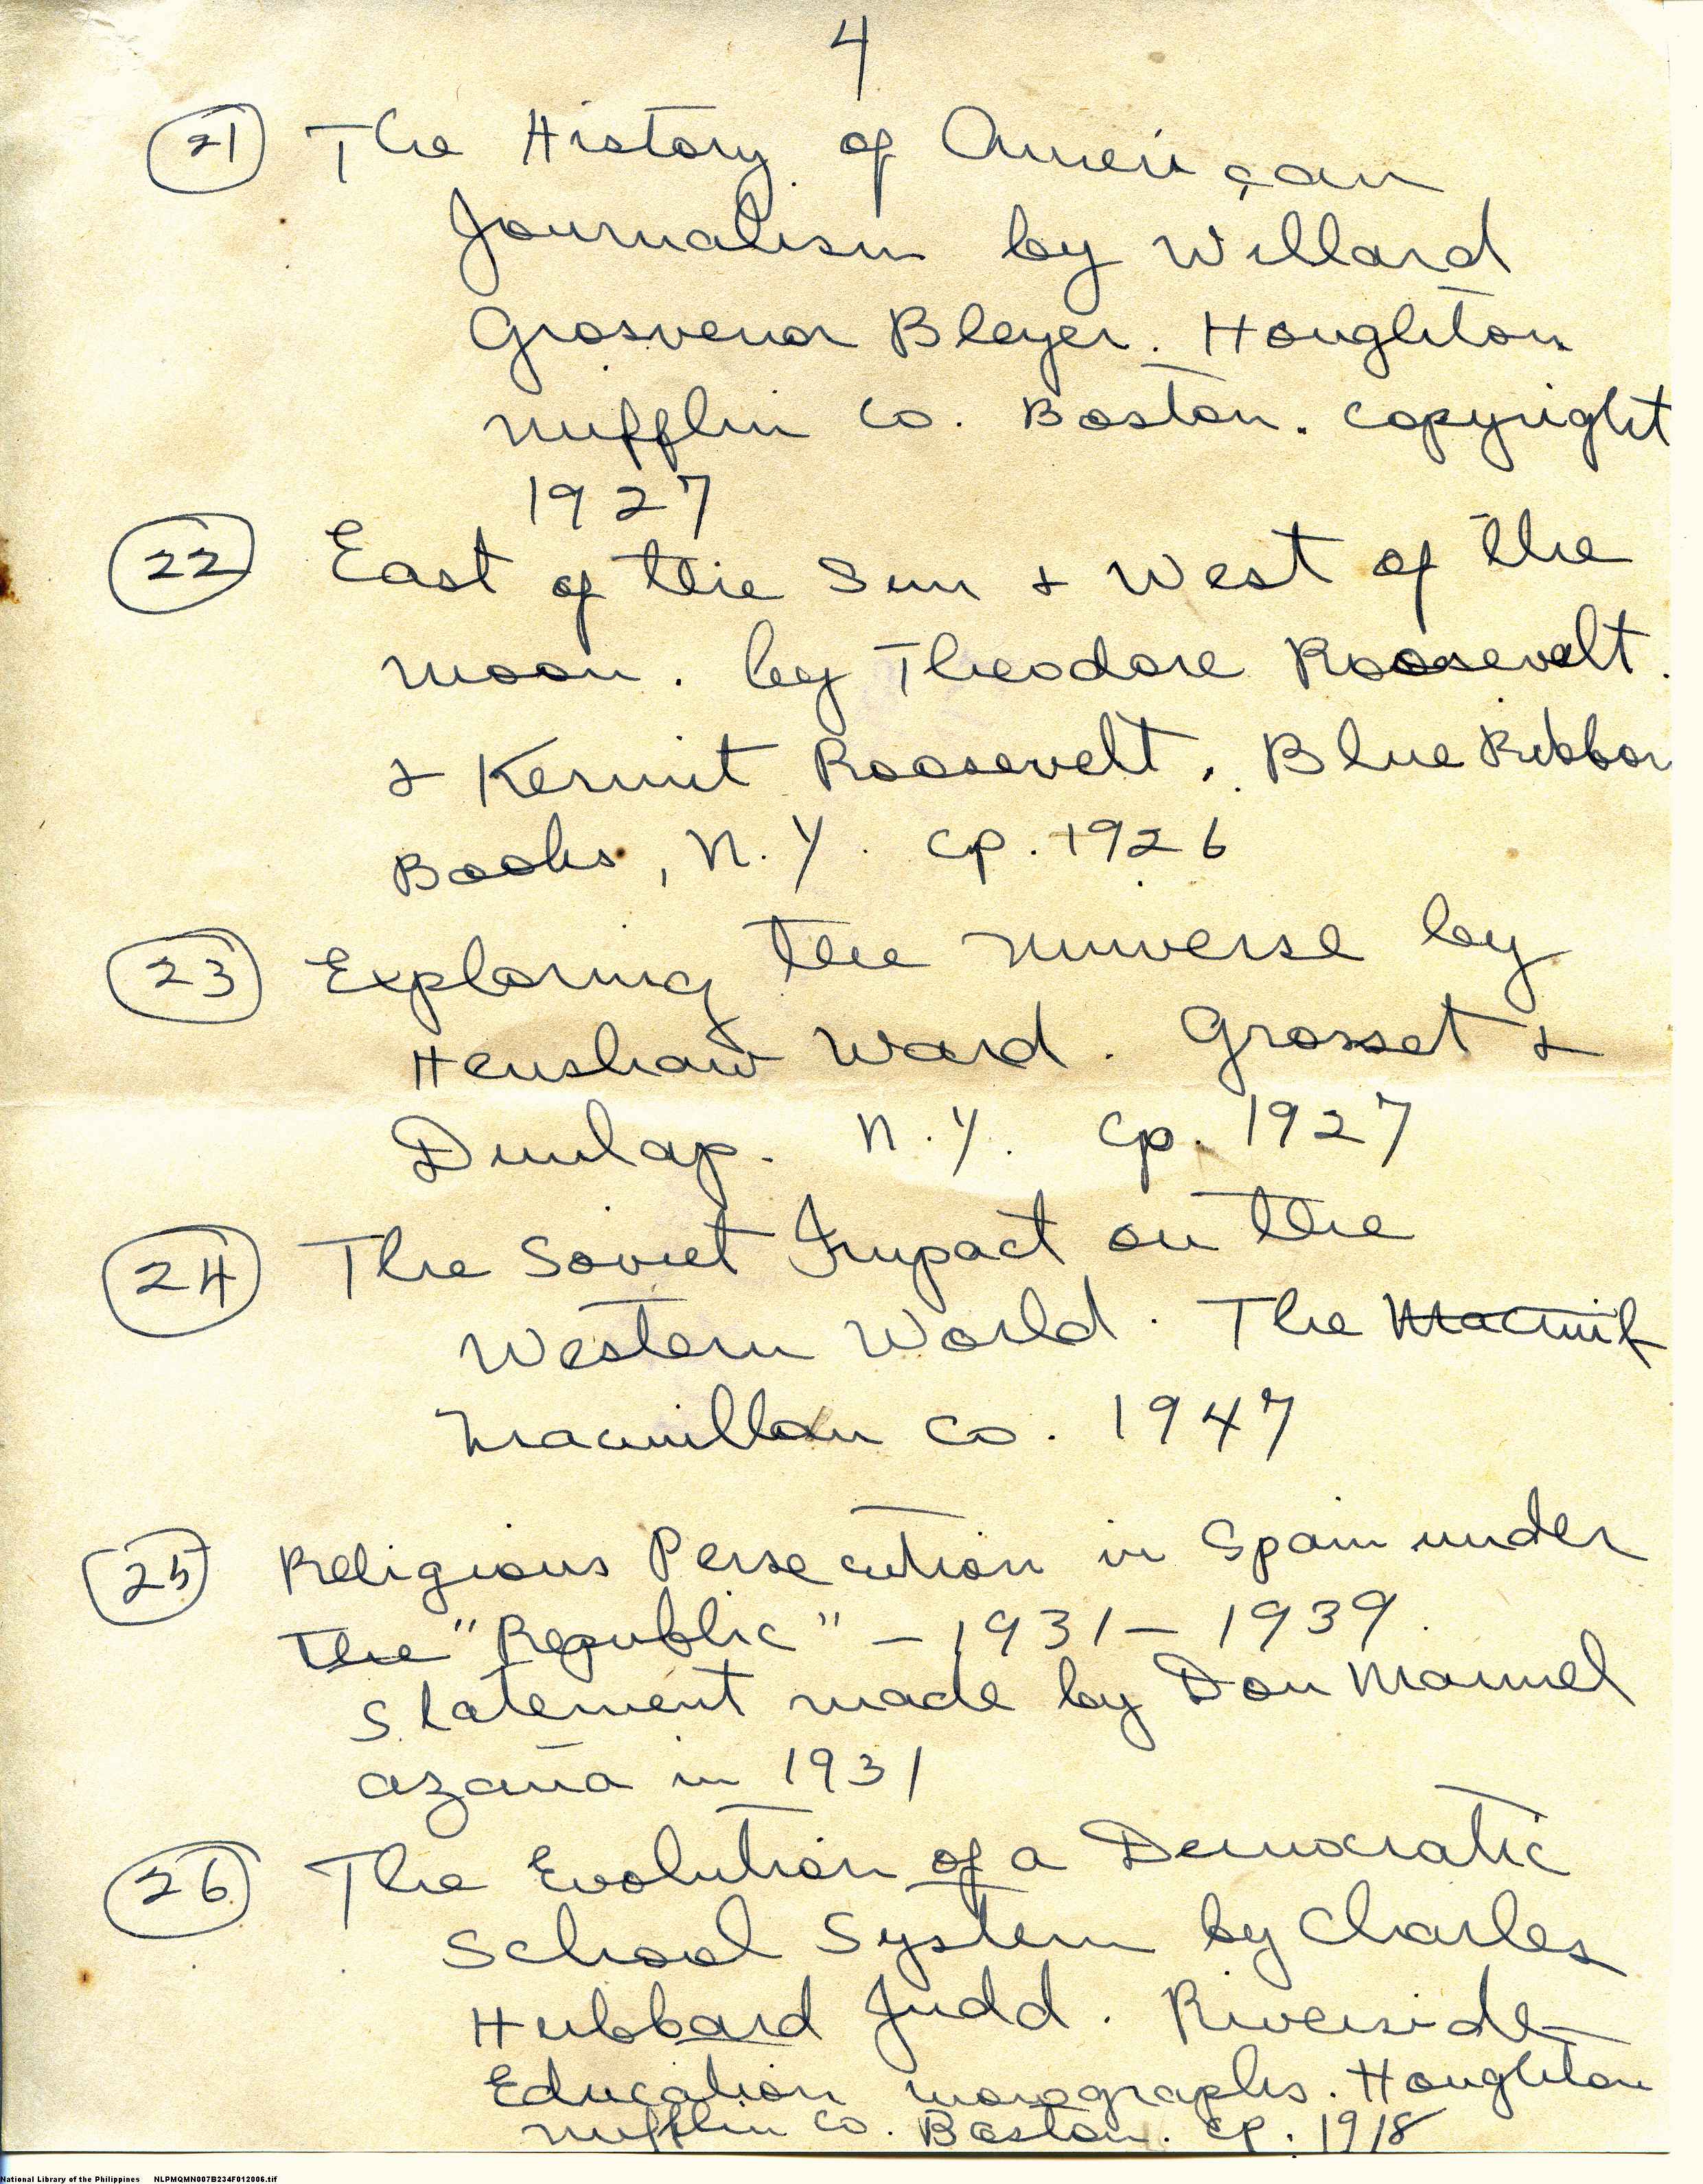 4
(21) The History of American
Journalism by Willard
Grosvenor Bleyer. Houghton
Mifflin Co. Boston. Copyright
1927
(22) East of the Sun & West of the
Moon. by Theodore Roosevelt.
& Kermit Roosevelt. Blue Ribbon
Books, N.Y. cp. 1926
(23) Exploring the Universe by
Henshaw Ward. Grosset &
Dunlap. N.Y. cp. 1927
(24) The Soviet Impact on the
Western World. The Macmil
Macmillan Co. 1947
(25) Religious Persecution in Spain under
the "Republic" - 1931 - 1939.
Statement made by Don Manuel
Azaña in 1931
(26) The Evolution of a Democratic
School System by Charles
Hubbard Judd. Riverside
Education monographs. Houghton
Mifflin Co. Boston. cp. 1918
National Library of the Philippines NLPMQMN007B234F012006.tif